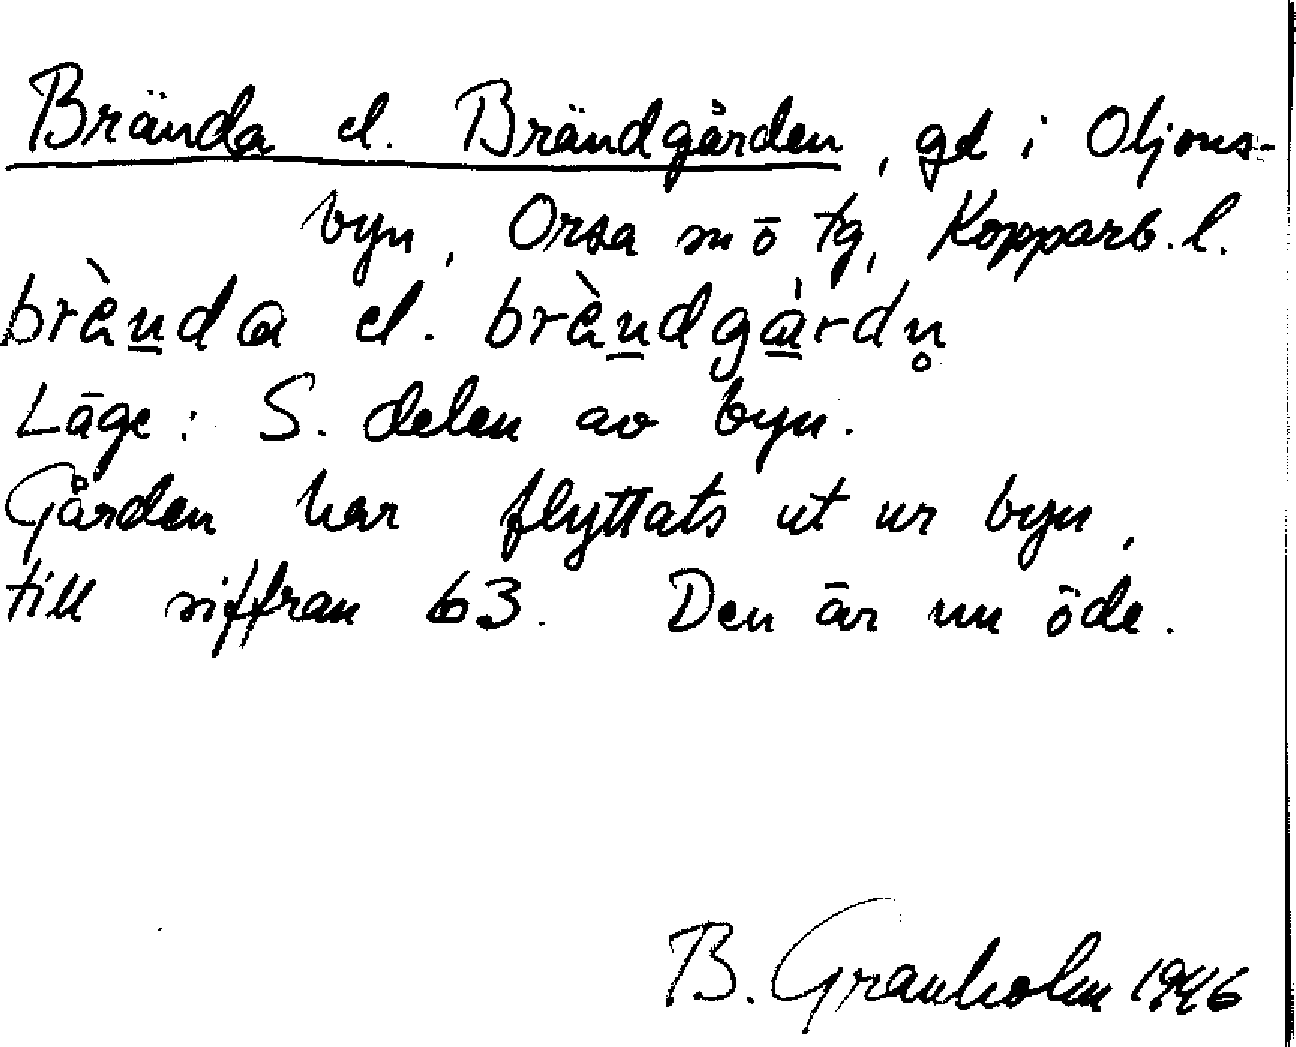 Brända el. Brändgården, gd i Oljons-
byn, Orsa sn o tg, Kopparb. l.
brὲn̠da el. brὲn̠dgá̠rdn̥
Läge: S. delen av byn.
Gården har flyttats ut ur byn,
till siffran 63. Den är nu öde.
B. Granholm 1946